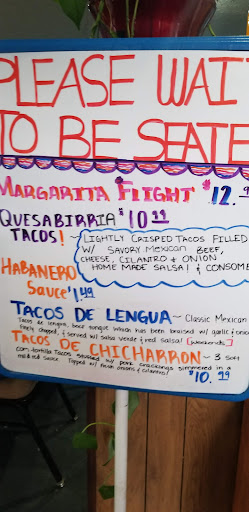 PLEASE WAI
TO BE SEATE
MARGARITA FLIGHT $12.
QUESABIRRIA $10 99
TACOS! ~ LIGHTLY CRISPED TACOS FILLED
W/ SAVORY MEXICAN BEEF,
CHEESE, CILANTRO & ONION
HOME MADE SALSA! & CONSOME
HABANERO
SAUCE $1.49
TACOS DE LENGUA ~ CLASSIC MEXICAN
Tacos de lengua, beef tongue which has been braised w/ garlic & onion
finely chopped, & served w/ salsa verde & red salsa! [weekends]
TACOS DE CHICHARRON ~ 3 SOFT
corn-tortilla Tacos stuffed w/ pork cracklings simmered in a
mild red sauce Topped w/ fresh onions & cilantro!
$10. 99